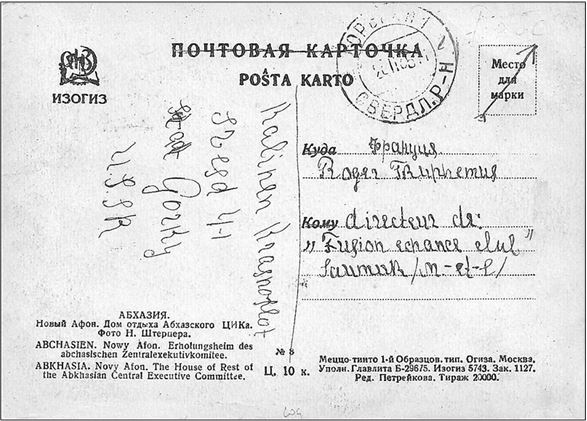 ИЗОГИЗ
ПОЧТОВАЯ КАРТОЧКА
POŜTA KARTO
СВЕРДЛ. Р-Н
Место
для
марки
Kalinen Krasnoflot
Gorky
USSR
Куда Франция
Roger
Кому directeur de:
" Fusion echance club "
/M-et-L/
АБХАЗИЯ.
Новый Афон. Дом отдыха Абхазского ЦИКа.
Фото Н. Штерцера.
ABCHASIEN. Nowy Afon. Erholungsheim des
abchasischen Zentralexekutivkomitee.
ABKHASIA. Novy Afon. The House of Rest of
the Abkhasian Central Executive Committee.
№ 8
Ц. 10 к.
Меццо-тинто 1-й Образцов. тип. Огиза. Москва.
Уполн. Главлита Б-29675. Изогиз 5743. Зак. 1127.
Ред. Петрейкова. Тираж 20000.